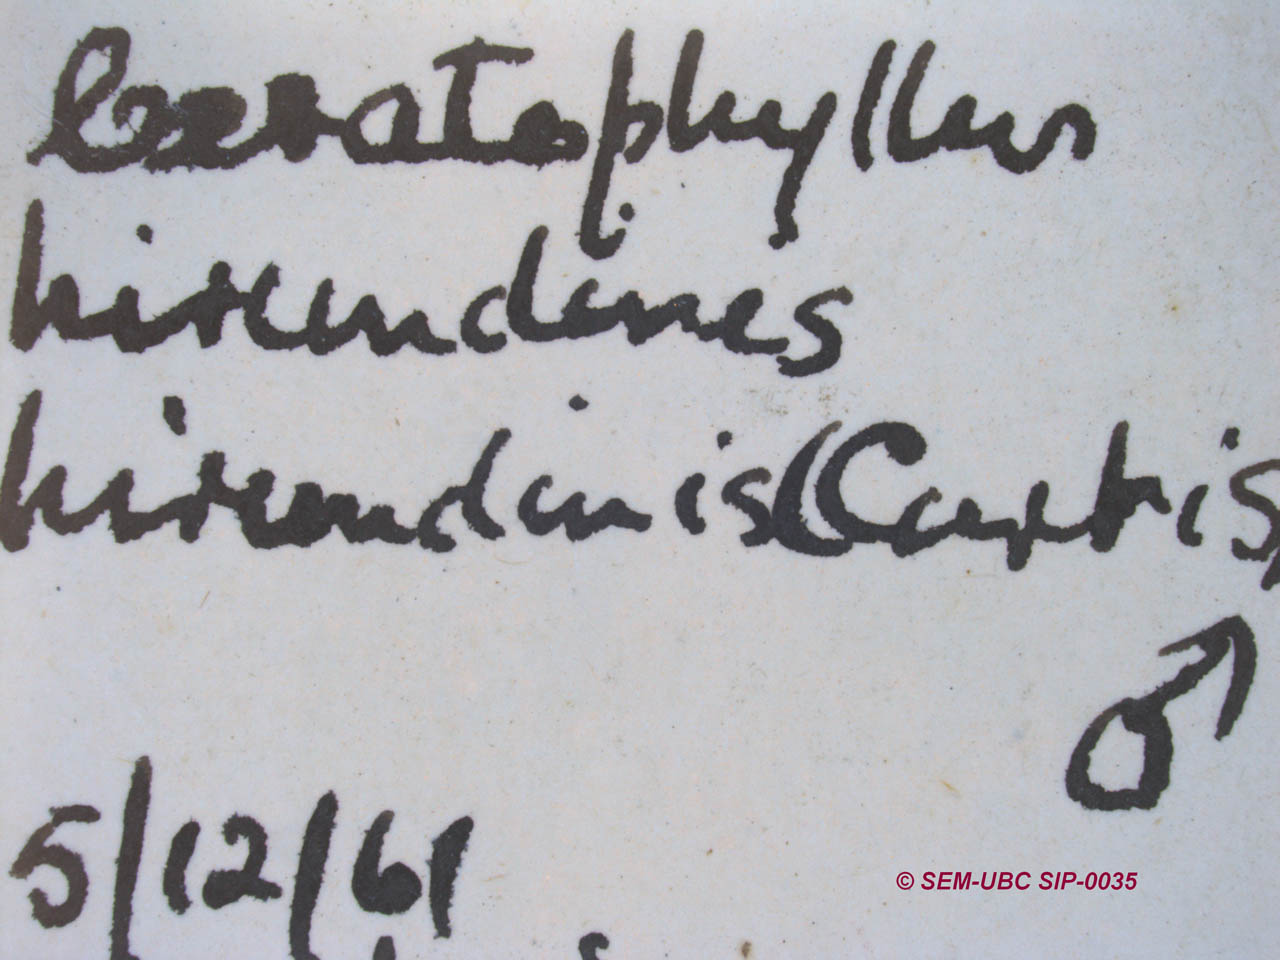 Ceratophyllus
hirundines
hirundinis (Curtis)
♂
5/12/61
© SEM-UBC SIP-0035